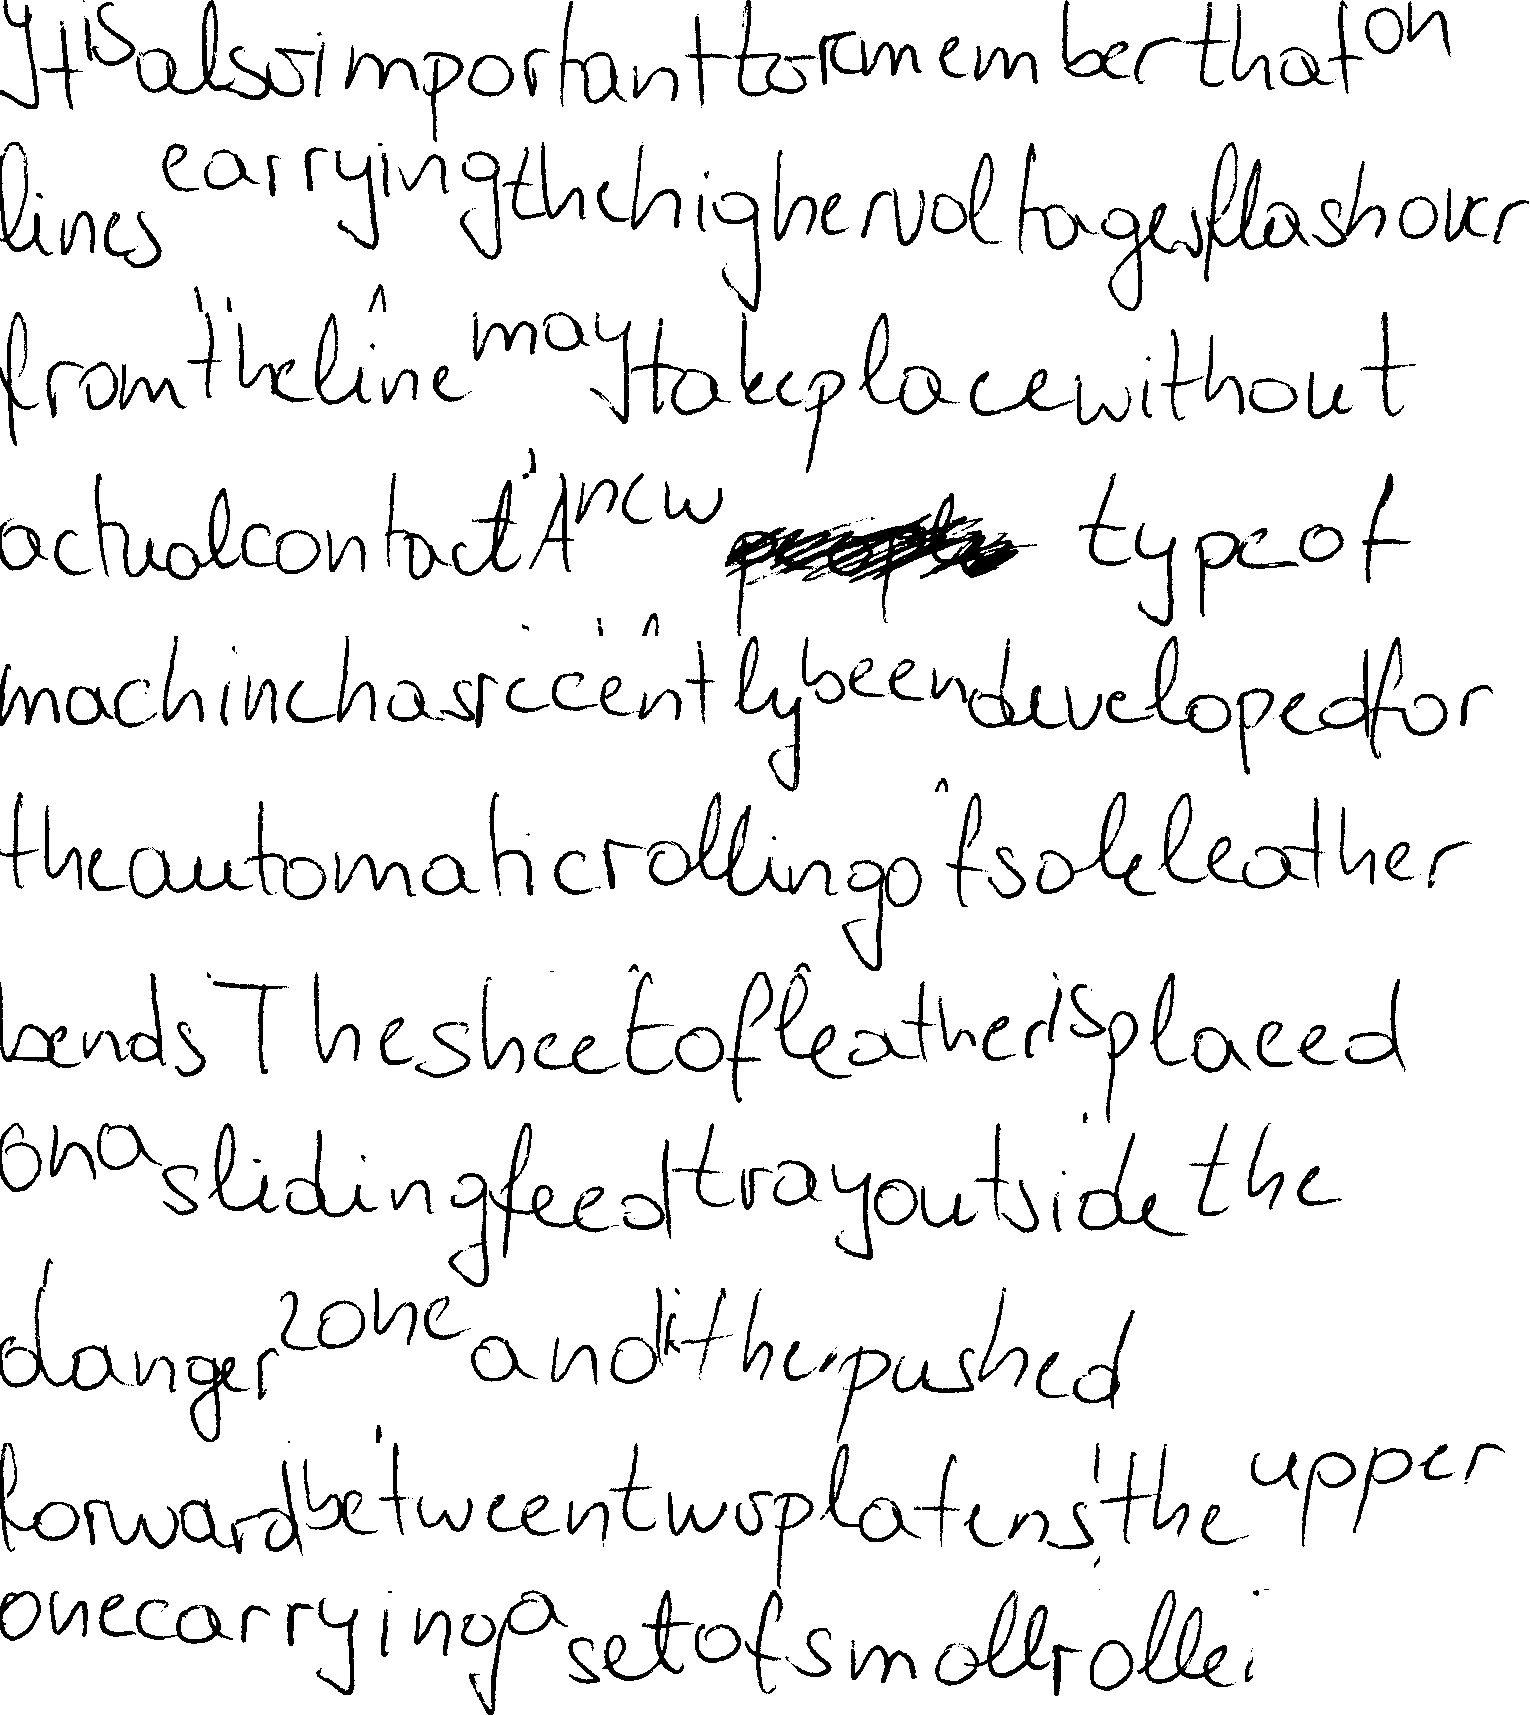 It is also important to remember that on
lines carrying the higher voltages flashover
from the line may take place without
actual contact. A new type of
machine has recently been developed for
the automatic rolling of sole leather
bends. The sheet of leather is placed
on a sliding feed tray outside the
danger zone and it then pushed
forward between two platens, the upper
one carrying a set of small